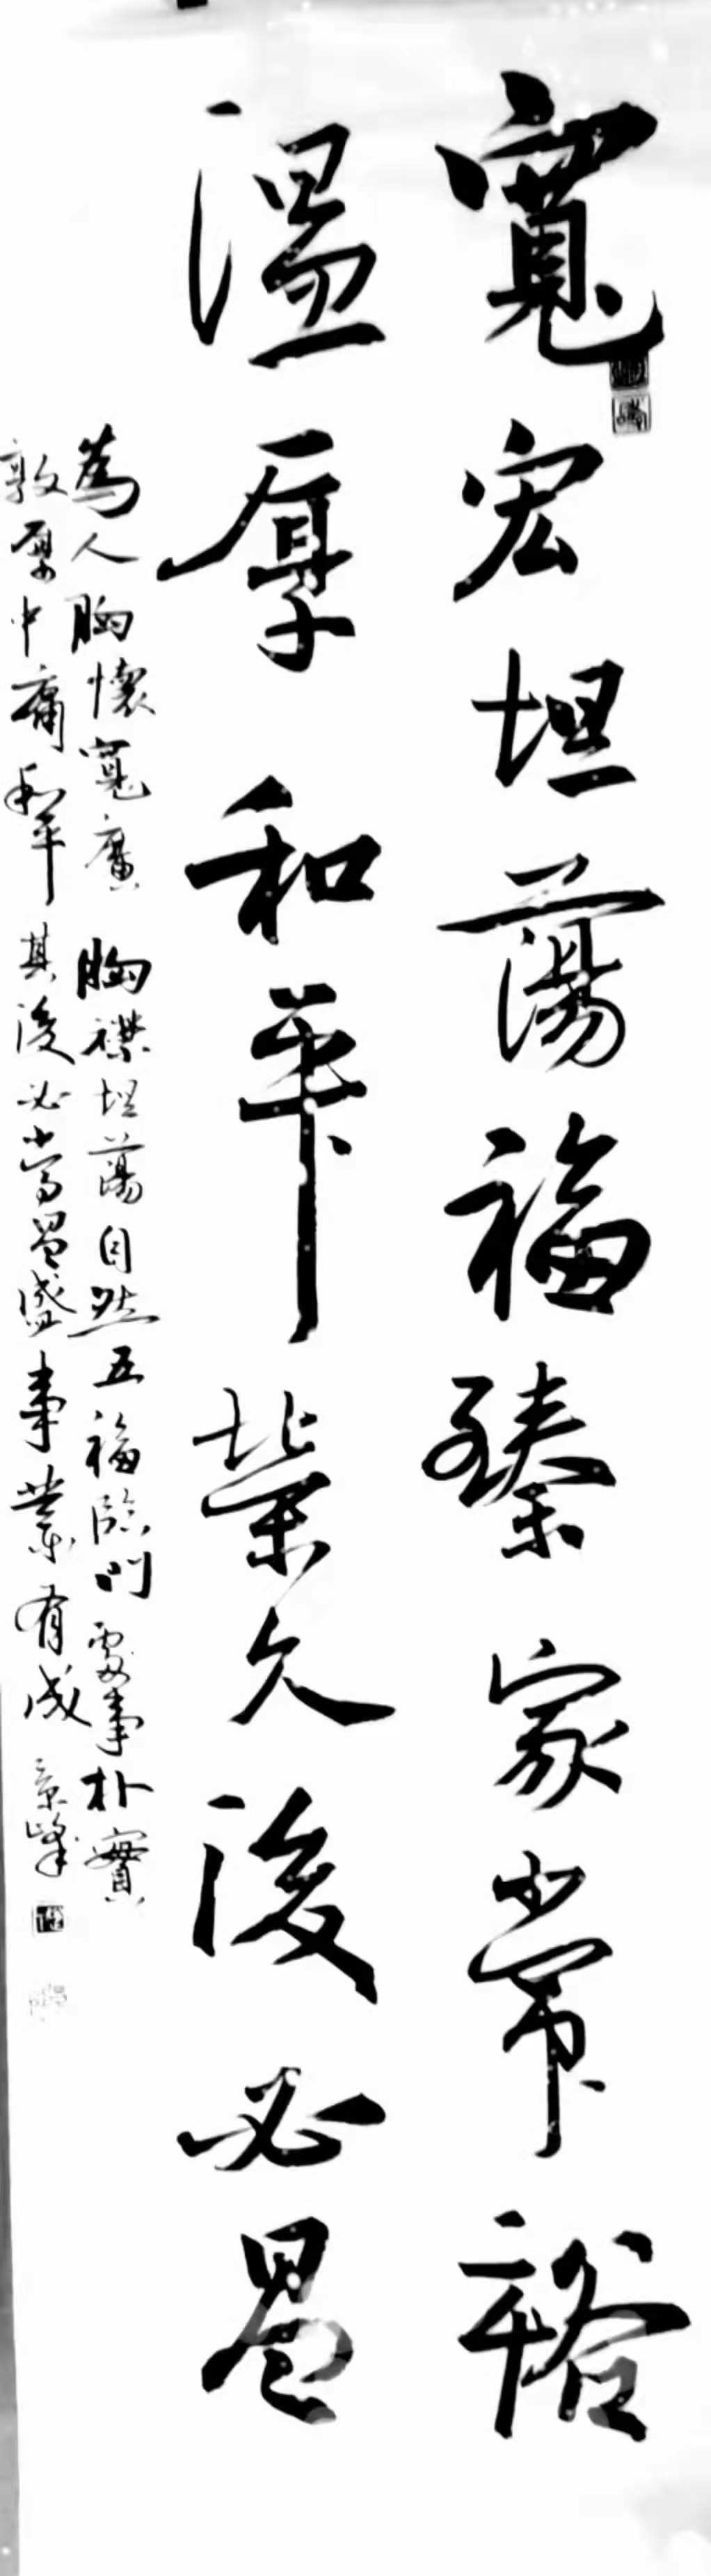 寬宏坦蕩福臻家常裕
溫厚和平榮久後必昌
為人胸懷寬廣胸襟坦蕩自然五福臨門處事朴實
敦厚中庸和平其後必當昌盛事業有成景峰